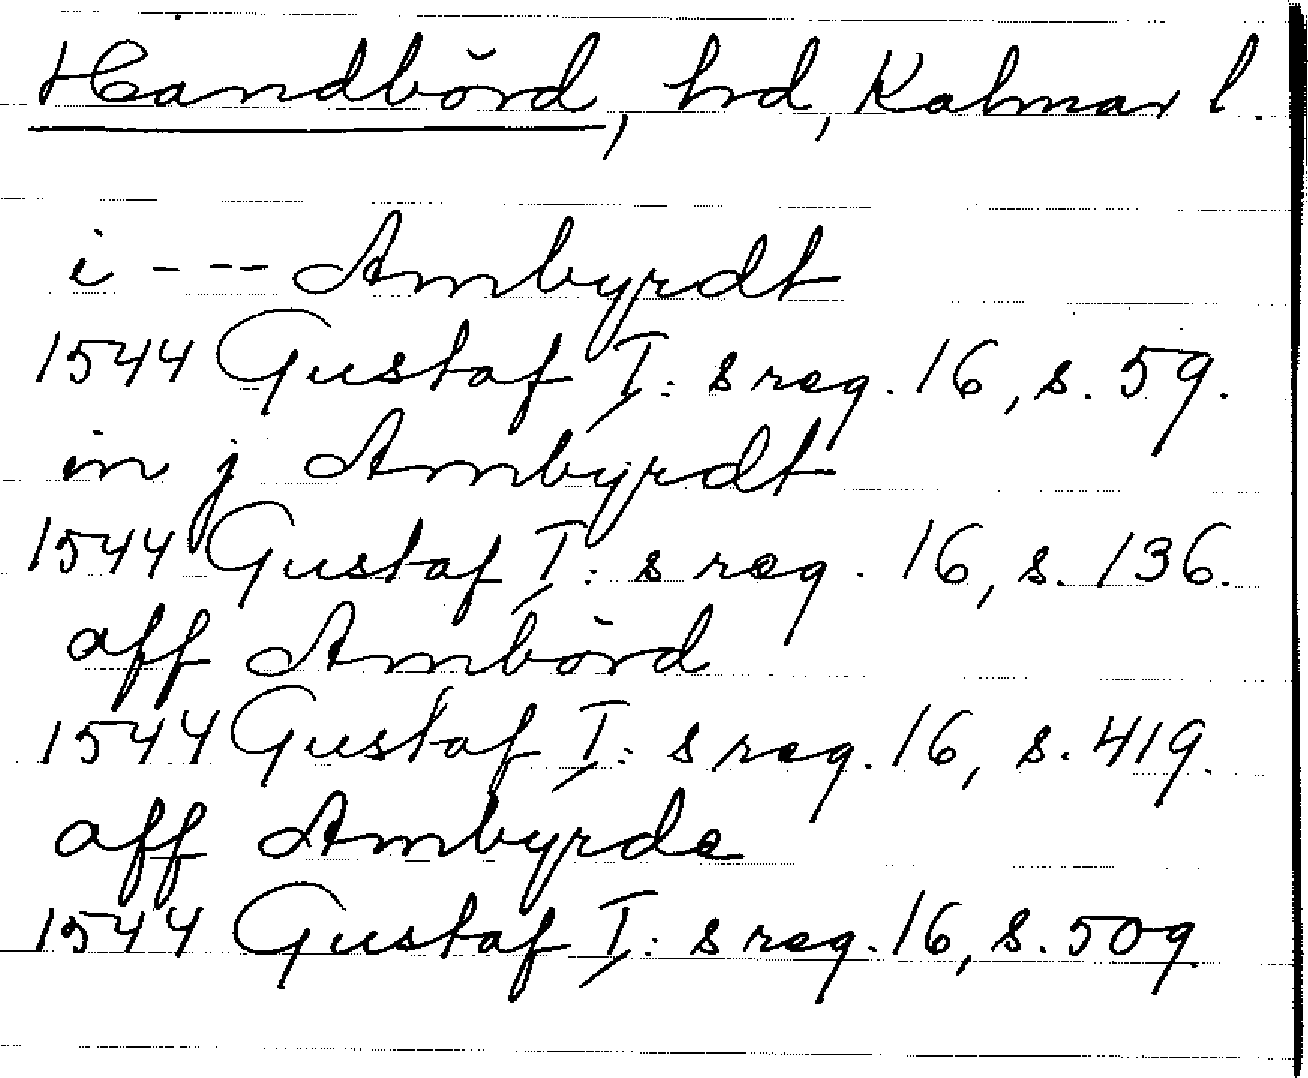 Handbörd, hrd, Kalmar l.
i - - - Ambyrdt
1544 Gustaf I:s reg. 16, s. 59.
in j Ambyrdt
1544 Gustaf I:s reg. 16, s. 136.
aff Ambörd
1544 Gustaf I:s reg. 16, s. 419.
aff Ambyrde
1544 Gustaf I:s reg. 16, s. 509